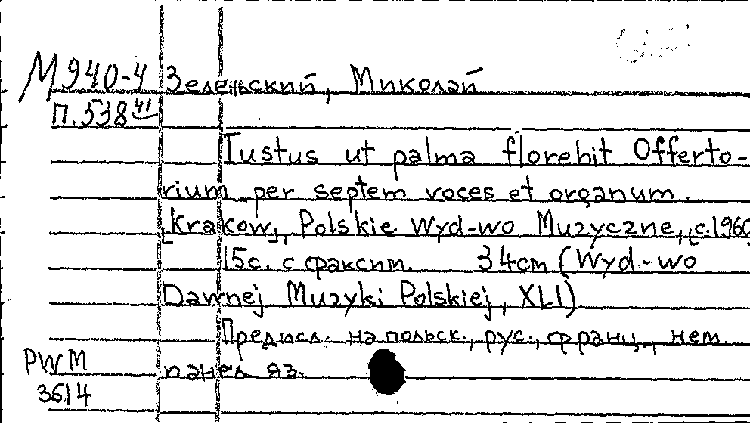 М940-4 Зеленьский, Миколай
П.538 41
Iustus ut palma florebit Offerto-
rium per septem voces et organum.
[Krakow], Polskie Wyd-wo Muzyczne, [c.1960
15с. с факсим. 34cm (Wyd.-wo
Dawnej Muzyki Polskiej, XLI)
Предисл. на польск., рус., франц., нем.
PWM и англ яз.
3614